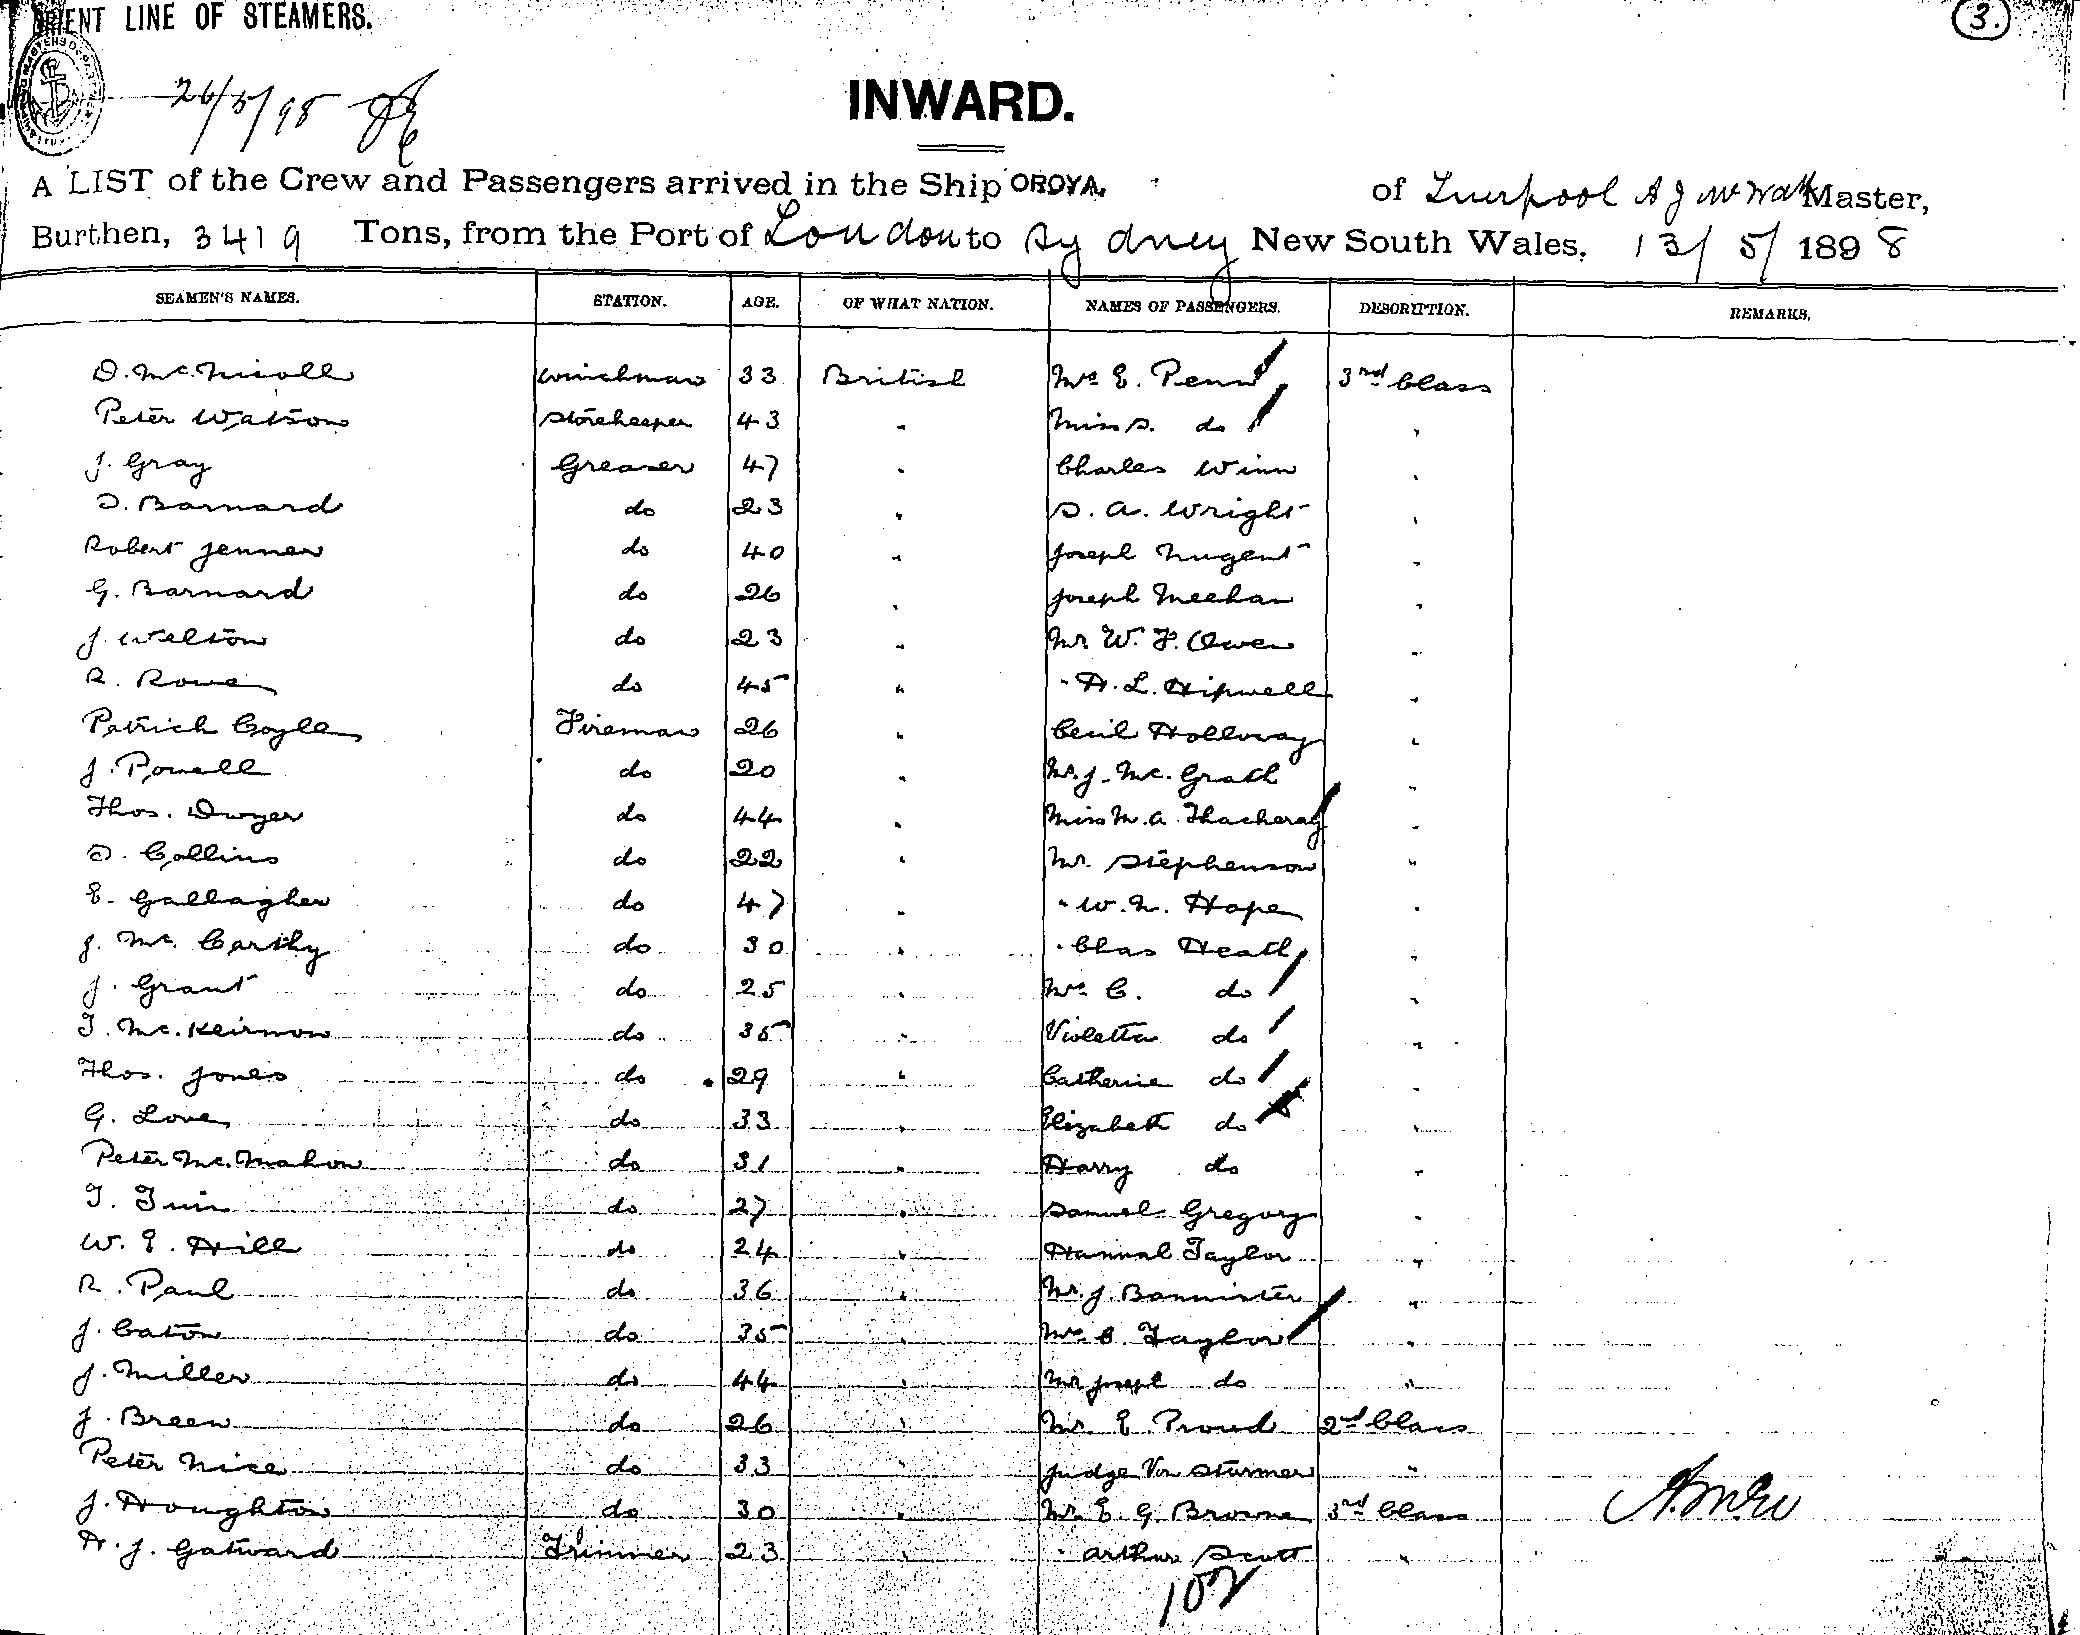 ORIENT LINE OF STEAMERS.
3.
26/5/98
INWARD.
A LIST of the Crew and Passengers arrived in the Ship OROYA. of Liverpool A J Master,
Burthen, 3419 Tons, from the Port of London to Sydney New South Wales, 13/5/1898
SEAMEN'S NAMES. STATION. AGE. OF WHAT NATION. NAMES OF PASSENGERS. DESCRIPTION. REMARKS.
D. Mc. Nicoll Winchman 33 British Mrs E. Penn 3rd Class
Peter Watson Storekeeper 43 " Miss S. do "
J. Gray Greaser 47 " Charles Winn "
D. Barnard do 23 " S. A. Wright "
Robert Jenner do 40 " Joseph Nugent "
G. Barnard do 26 " Joseph Meehan "
J. Welton do 23 " Mr. W. F. Owen "
R. Rowe do 45 " " H. L. Hipwell "
Patrick Coyle Fireman 26 " Cecil Holloway "
J. Powell do 20 " Mr. J. Mc. Grath "
Thos. Dwyer do 44 " Miss M. A. Thackeray "
D. Collins do 22 " Mr. Stephenson "
E. Gallagher do 47 " " W. N. Hope "
J. Mc. Carthy do 30 " " Chas Heath "
J. Grant do 25 " Mrs C. do "
T. Mc. Keirnon do 35 " Violetta do "
Thos. Jones do 29 " Catherine do "
G. Love do 33 " Elizabeth do "
Peter Mc. Mahon do 31 " Harry do "
T. do 27 " Samuel Gregory "
W. E. Hill do 24 " Hannah Taylor "
R. Paul do 36 " Mr. J. Bannister "
J. Caton do 35 " Mrs C. Taylor "
J. Miller do 44 " Mr Joseph do "
J. Breen do 26 " Mr. E. Proud 2nd Class
Peter Nice do 33 " Judge Von Sturmer "
J. Houghton do 30 " Mr. E. G. Browne 3rd Class
H. J. Gatward Trimmer 23 " " Arthur Scott "
102